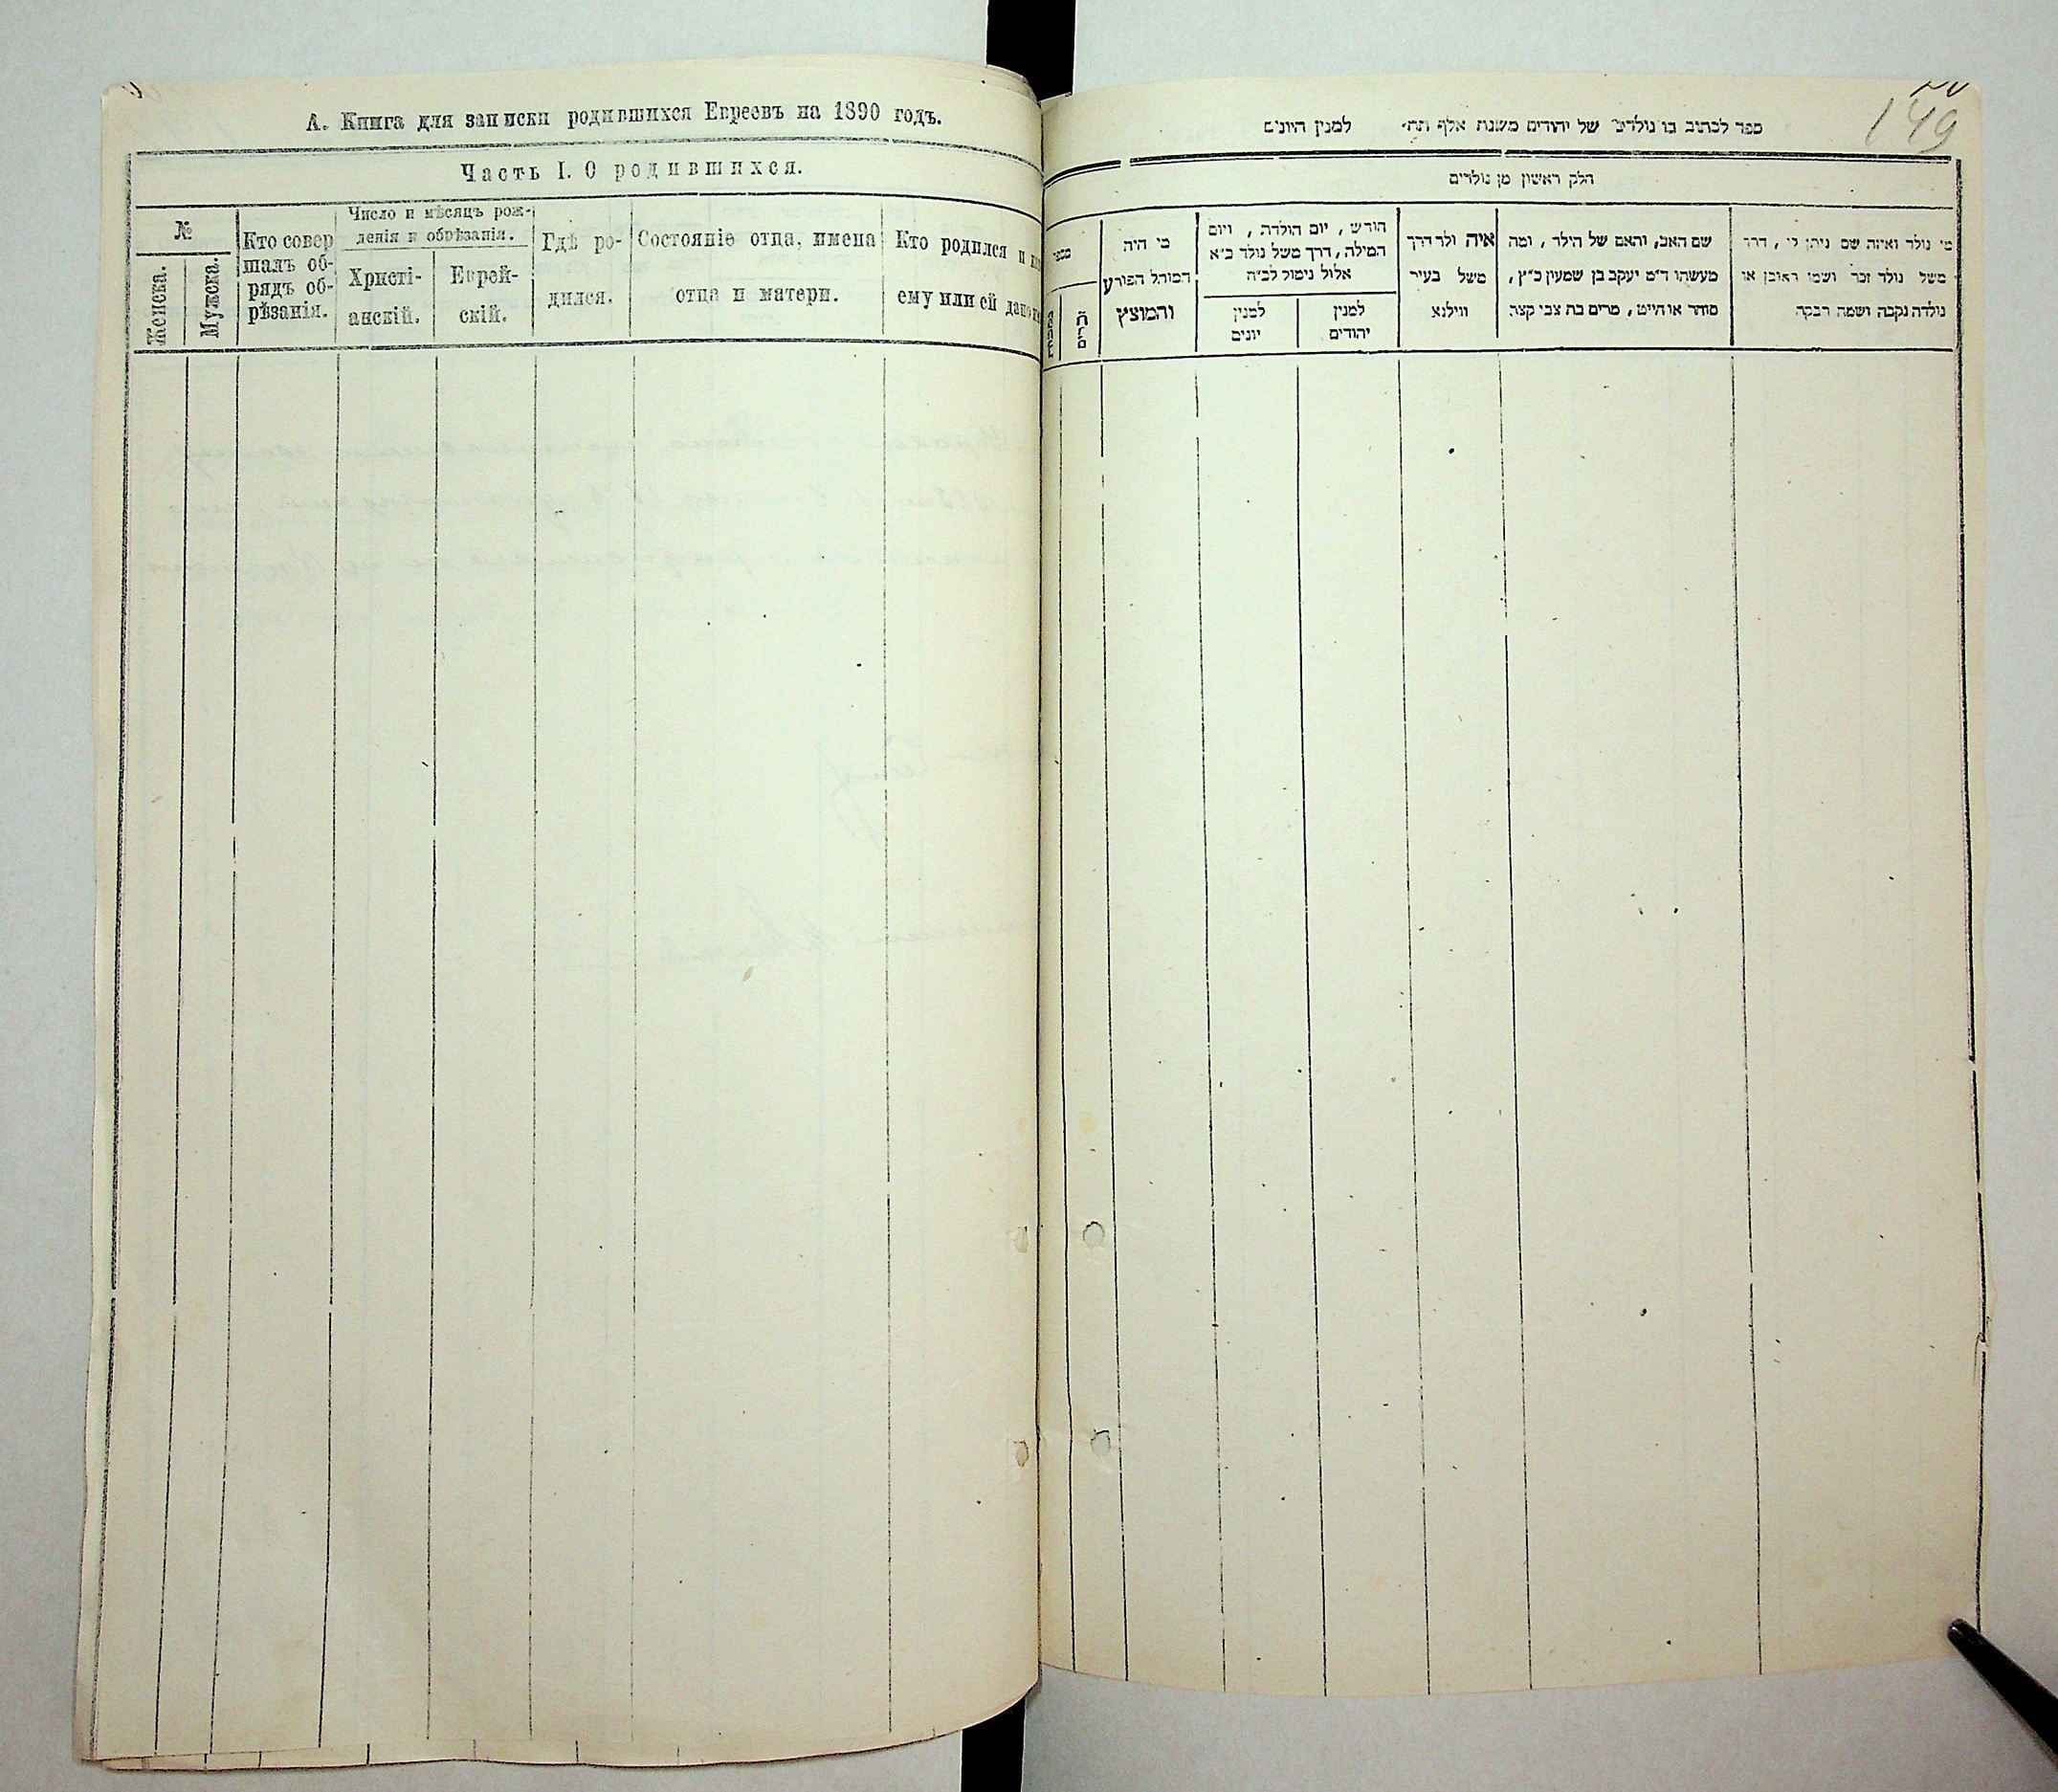 А. Книга для записки родившихся Евреевъ на 1890 годъ.
Часть I. О родившихся.
№
Женска.
Мужска.
Кто совер
шалъ об-
рядъ об-
рѣзанія.
Число и мѣсяцъ рож-
денія и обрѣзанія.
Христі-
анскій.
Еврей-
скій.
Гдѣ ро-
дился.
Состояніе отца, имена
отца и матери.
Кто родился и
ему или ей
149
ספר לכתוב בו נולדים של יהודים משנת אלף תת׳ למנין היונים
חלק ראשון מן נולדים
מספר
זכרים
מי היה
המוהל הפורע
והמוצץ
חורש , יום הולדת , ויום
המילה, דרך משל נולד כ״א
אלול נימול לב״ה
למנין
יונים
למנין
יהודים
איה ולד דרך
משל בעיר
ווילנא
שם האב, והאם של הילד , ומה
מעשהו ד״מ יעקב בן שמעון כ״ץ ,
סוחר או חייט , מרים בת צבי קצב
מי נולד ואיזה שם ניתן לו , דרך
משל נולד זכר ושמו ראובן או
נולדה נקבה ושמה רבקה